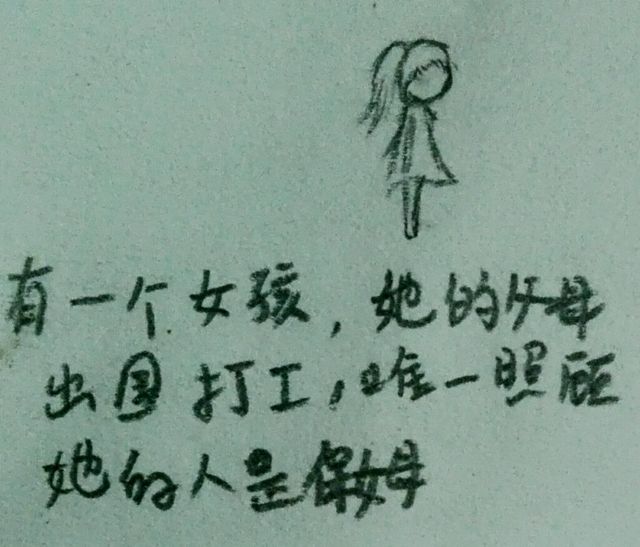 有一个女孩，她的父母
出国打工，唯一照顾
她的人是保姆